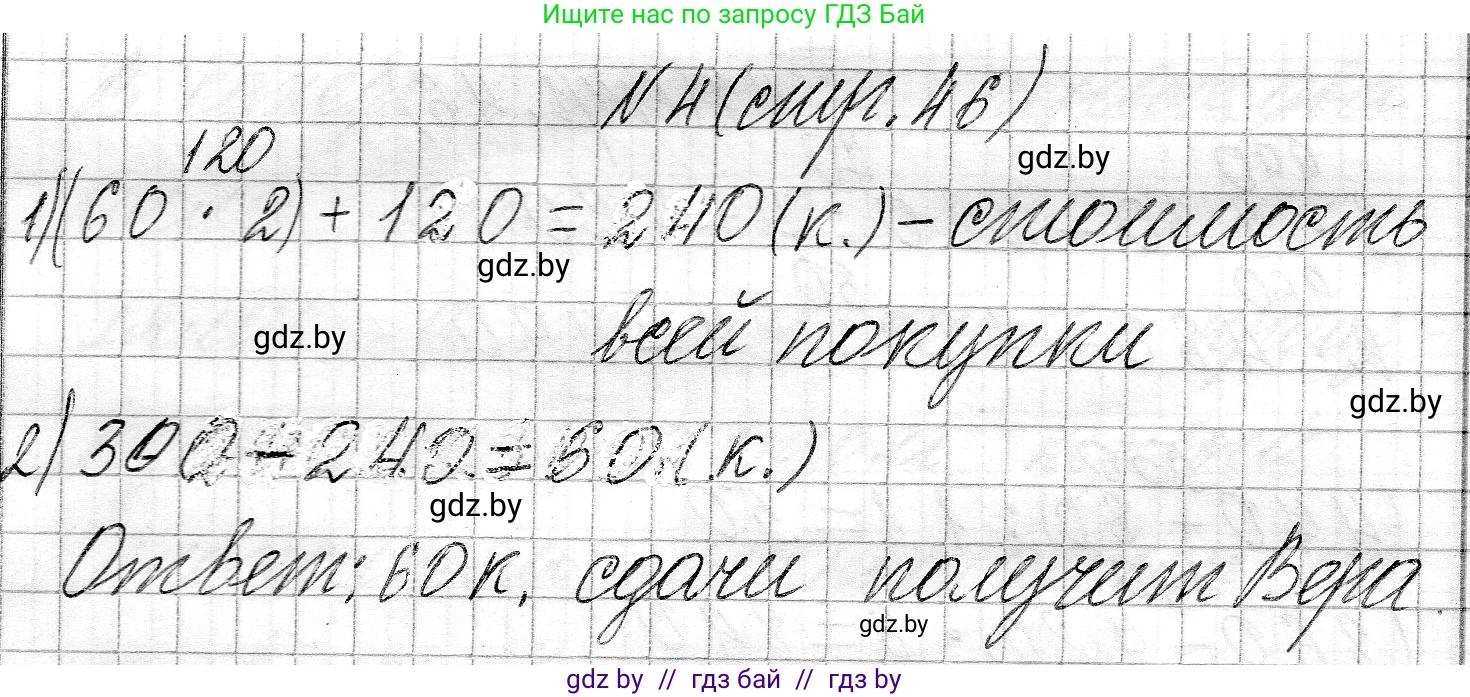 Ищите нас по запросу ГДЗ Бай
№ 4 (стр. 46)
gdz.by
120
1) (60 · 2) + 120 = 240 (к.) – стоимость
gdz.by
всей покупки
gdz.by
gdz.by
2) 300 – 240 = 60 (к.)
gdz.by
Ответ: 60 к. сдачи получит Вера.
gdz.by
gdz by // гдз бай // гдз by